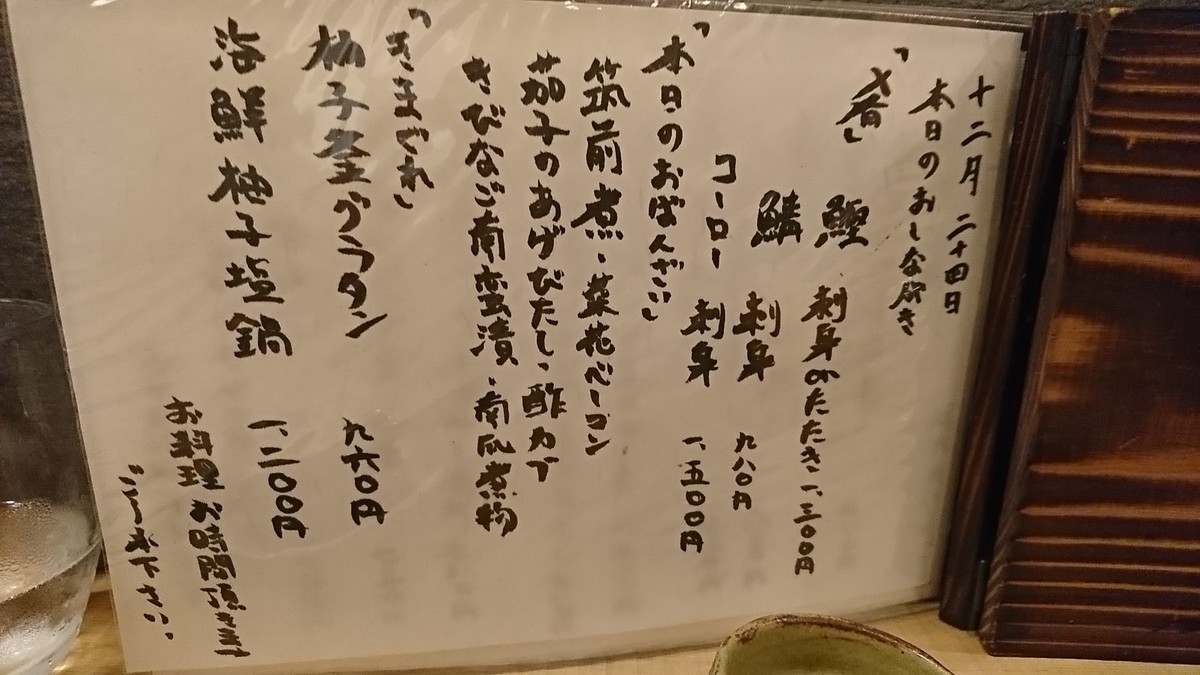 十二月二十四日
本日のおしながき
「肴」
鰹 刺身orたたき 一、三〇〇円
鱗 刺身 九八〇円
コーロー 刺身 一、五〇〇円
「本日のおばんざい」
筑前煮・菜花ベーコン
茄子のあげびたし・酢カブ
きびなご南蛮漬・南瓜煮物
「きまぐれ」
柚子釜グラタン 九六〇円
海鮮柚子塩鍋 一、二〇〇円
お料理お時間頂きます
ご了承下さい。